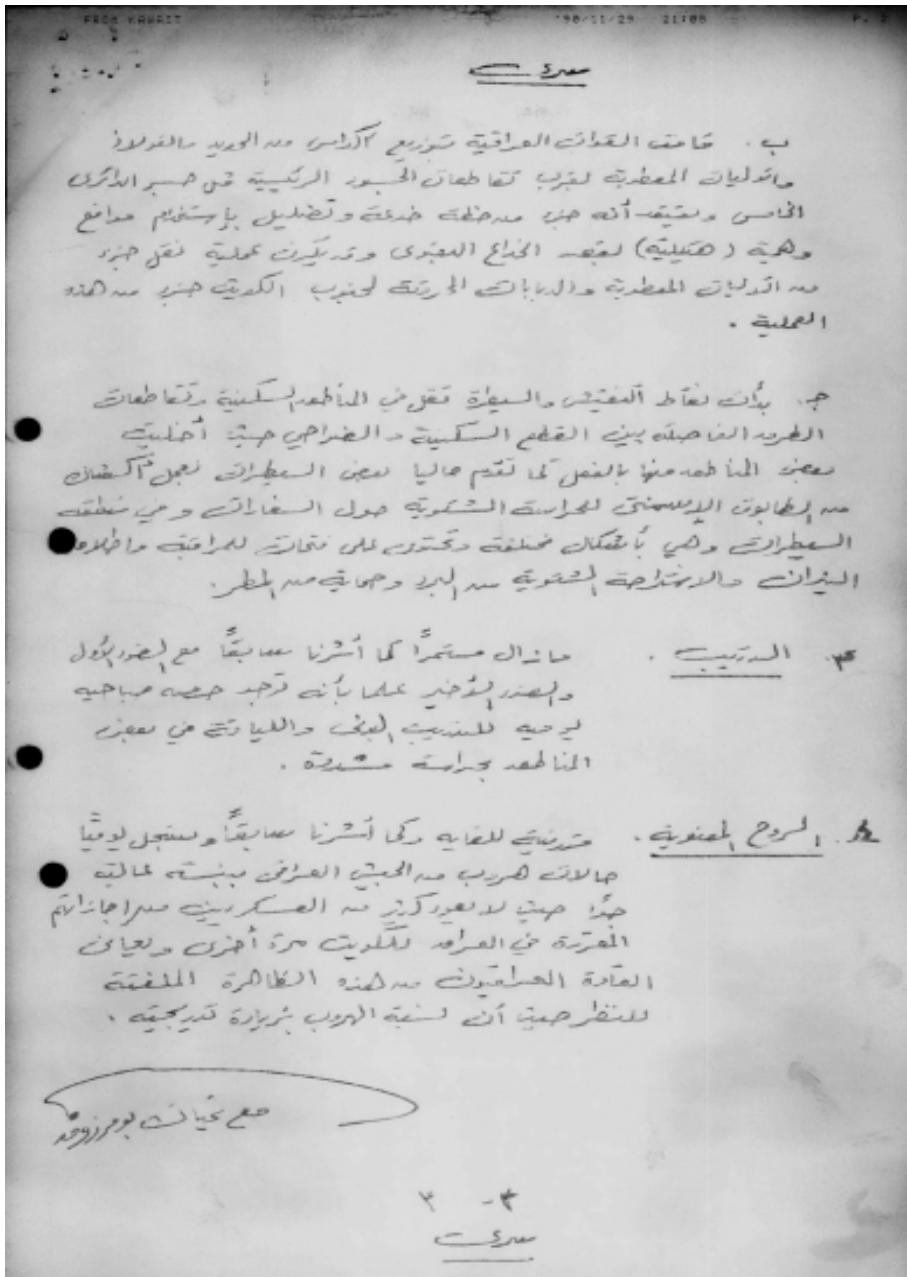 FROM KUWAIT '90/11/29 21:08 P. 2
سري
ب. قامت القوات العراقية بتوزيع أكداس من الحديد والفولاذ
والآليات المعطوبة بقرب تقاطعات الجسور الرئيسية مثل جسر الدائري
الخامس ونعتقد أنه جزء من خطة خدعة وتضليل بإستخدام مواقع
وهمية (هيكلية) بقصد الخداع التعبوي وقد يكون عملية نقل جزء
من الآليات المعطوبة والدبابات المحروقة لجنوب الكويت جزء من هذه
العملية .
جـ. بدأت نقاط التفتيش والسيطرة تقل في المناطق السكنية وتقاطعات
الطرق الفاصلة بين القطع السكنية والضواحي حيث أخليت
بعض المناطق منها بالفعل كما تقوم حاليا بعض السيطرات بعمل أكشاك
من الطابوق الإسمنتي للحراسة الشتوية حول السفارات وفي منطقة
السيطرات وهي بأشكال مختلفة وتحتوي على فتحات للمراقبة واطلاق
النيران والاستراحة الشتوية من البرد وحماية من المطر.
٣. التدريب . مازال مستمراً كما أشرنا سابقاً مع الضوء الأول
والضوء الأخير علما بأنه توجد حصه صباحيه
يوميه للتدريب البدني واللياقة في بعض
المناطق بحراسة مشددة .
٤. الروح المعنوية . متدنية للغايه وكما أشرنا سابقاً ونسجل يومياً
حالات هروب من الجيش العراقي بنسبة عالية
جداً حيث لا يعود كثير من العسكريين من اجازاتهم
المقررة في العراق للكويت مرة أخرى ويعاني
القادة العراقيون من هذه الظاهرة الملفتة
للنظر حيث أن نسبة الهروب بزيادة تدريجية .
مع تحيات بو مرزوق
٣ - ٣
سري